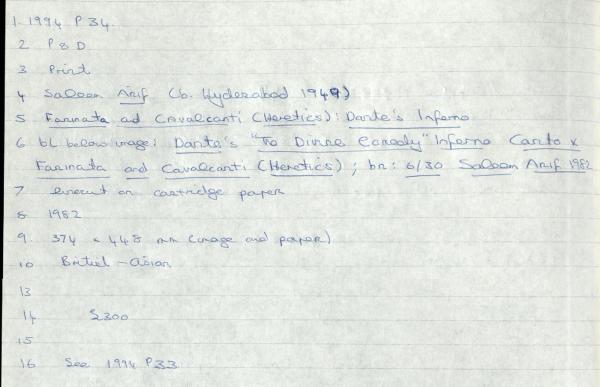 1. 1994 P 34.
2 P & D
3 Print
4 Saleem Arif (b. Hyderabad 1949)
5 Farinata ad Cavalcanti (Heretics): Dante's Inferno
6 bL below image: Dante's "The Divine Comedy" Inferno Canto X
Farinata and Cavalcanti (Heretics); br: 6/30 Saleem Arif 1982
7 linocut on cartridge paper
8 1982
9. 374 x 448 mm (image and paper)
10 British-Asian
13
14 £300
15
16 See 1994 P33